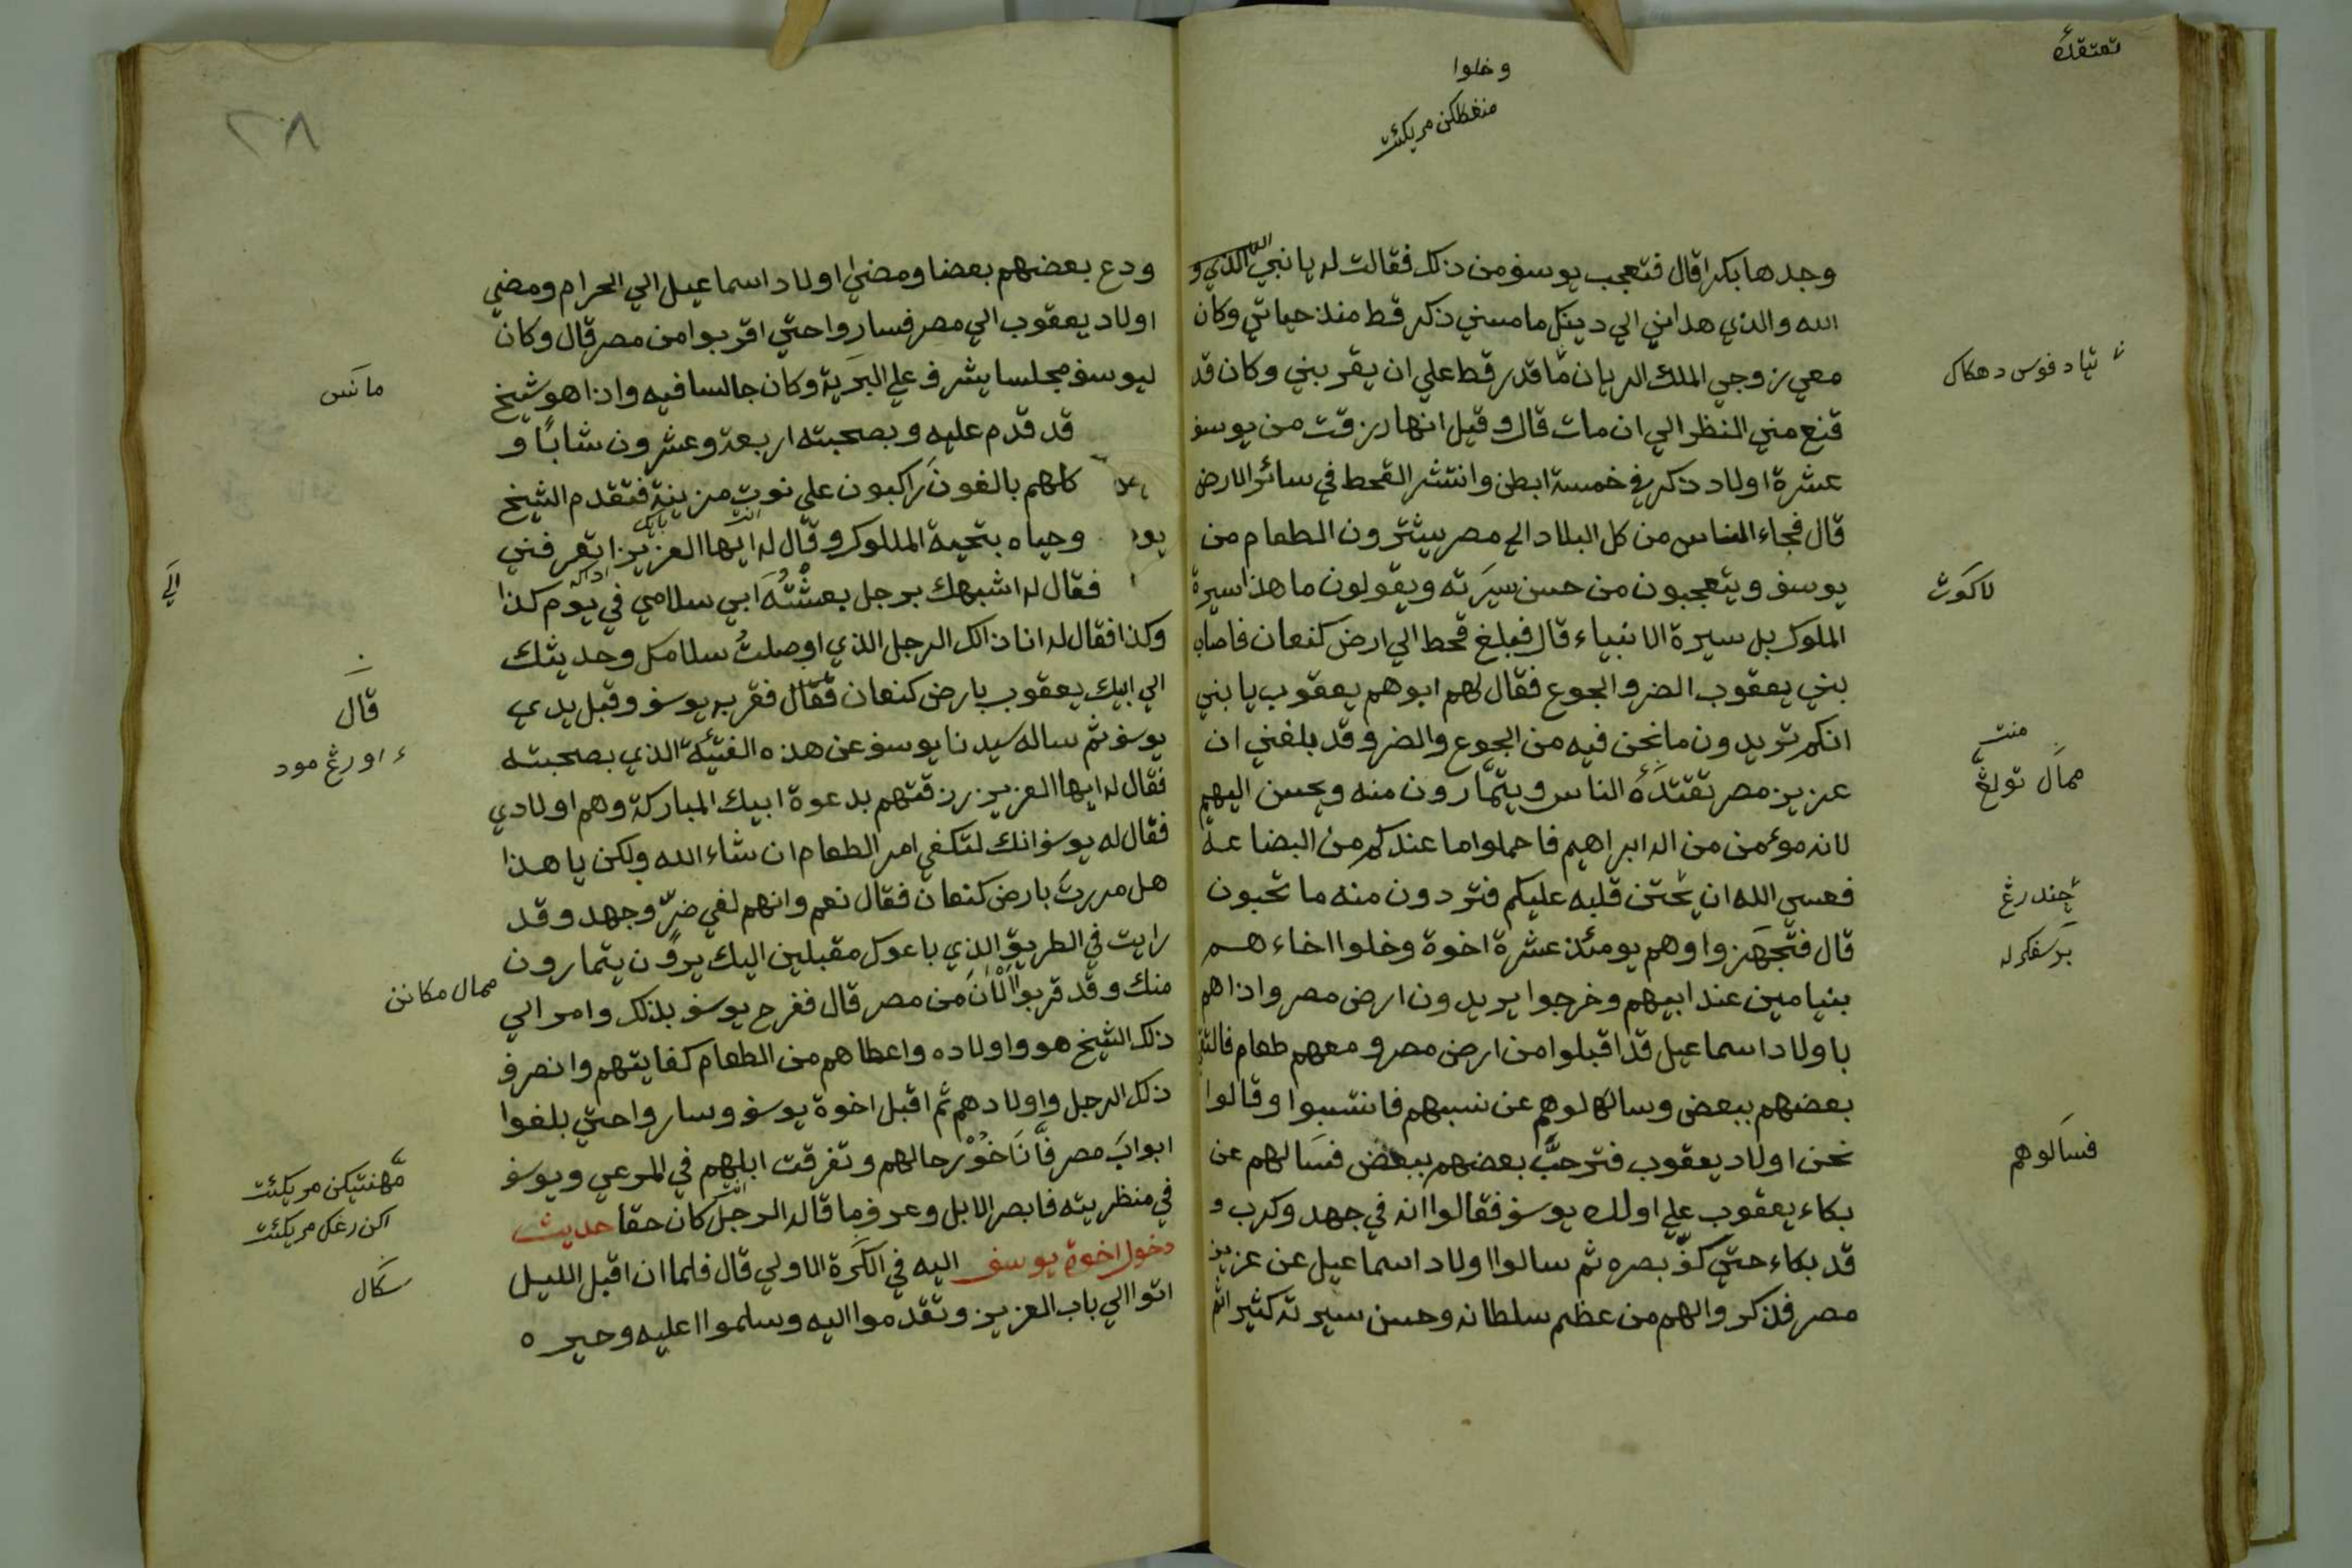 تعتقده
وخلوا
منغطلكن مريكئت
وجدها بكرا قال فتعجب يوسف من ذلك فقالت له يا نبي الله الذي و
الله والذي هداني الي دينك ما مسني ذكر قط منذ حياتي وكان
معي زوجي الملك الريان ما قدر قط علي ان يقربني وكان قد
قنع مني النظر الي ان مات قال وقيل انها رزقت من يوسف
عشرة اولاد ذكر في خمسة ابطن وانتشر القحط في سائر الارض
قال فجاء الناس من كل البلاد الي مصر يشترون الطعام من
يوسف ويتعجبون من حسن سيرته ويقولون ما هذا سيرة
الملوك بل سيرة الانبياء قال فبلغ قحط الي ارض كنعان فاصاب
بني يعقوب الضر والجوع فقال لهم ابوهم يعقوب يا بني
انكم تريدون ما نحن فيه من الجوع والضر وقد بلغني ان
عزيز مصر تقتده الناس ويتمارون منه ويحسن اليهم
لانه موءمن من اله ابراهيم فاحملوا ما عندكم من البضاعة
فعسي الله ان يحتن قلبه عليكم فتردون منه ما تحبون
قال فتجهزوا وهم يومئذ عشرة اخوة وخلوا اخاءهم
بنيامين عند ابيهم وخرجوا يريدون ارض مصر واذا هم
باولاد اسماعيل قد اقبلوا من ارض مصر ومعهم طعام فالتقي
بعضهم ببعض وسالهالوهم عن نسبهم فانتسبوا وقالوا
نحن اولاد يعقوب فترحب بعضهم ببعض فسالهم عن
بكاء يعقوب علي اولك يوسف فقالوا انه في جهد وكرب و
قد بكاء حتي كف بصره ثم سالوا اولاد اسماعيل عن عزيز
مصر فذكروا لهم من عظم سلطانه وحسن سيرته كثير اثم
تياد فوس دهكاك
لاكوث
منت
ممال تولڠ
چندرڠ
برسفكرله
فسالوهم
ودع بعضهم بعضا ومضي اولاد اسماعيل الي الحرام ومضي
اولاد يعقوب الي مصر فساروا حتي اقربوا من مصر قال وكان
ليوسف مجلسا يشرف علي البرية وكان جالسا فيه واذا هو شيخ
قد قدم عليه وبصحبته اربعة وعشرون شابا و
كلهم بالغون راكبون علي نوت مزينة فتقدم الشيخ
وحياه بتحية الملوك وقال له ايها العزيز اتعرفني
فقال له اشبهك برجل بعثته ابي سلامي في يوم كذا
وكذا فقال له انا ذالك الرجل الذي اوصلت سلامك وحديثك
الي ابيك يعقوب بارض كنعان فقال فقربه يوسف وقبل يدي
يوسف ثم ساله سيدنا يوسف عن هذه الفتية الذي بصحبته
فقال له ايها العزيز رزقتهم بدعوة ابيك المباركة وهم اولادي
فقال له يوسف انك لتكفي امر الطعام ان شاء الله ولكن يا هذا
هل مررت بارض كنعان فقال نعم وانهم لفي ضر وجهد وقد
رايت في الطريق الذي باعوك مقبلين اليك يرون يتمارون
منك وقد قربوا الان من مصر قال ففرح يوسف بذلك وامر الي
ذلك الشيخ هو واولاده واعطاهم من الطعام كفايتهم وانصرف
ذلك الرجل واولادهم ثم اقبل اخوة يوسف وساروا حتي بلغوا
ابواب مصر فاناخو رحالهم وتفرقت ابلهم في المرعي ويوسف
في منظريته فابصر الابل وعرف ما قاله الرجل كان حقا حديث
دخول اخوة يوسف اليه في الكرة الاولي قال فلما ان اقبل الليل
اتوا الي باب العزيز وتقدموا اليه وسلموا عليه وحيره
مانس
الي
قال
اورڠ مود
ممال مكانن
مڠهنتيكن مريكئت
اكن رغك مريكئت
سكال